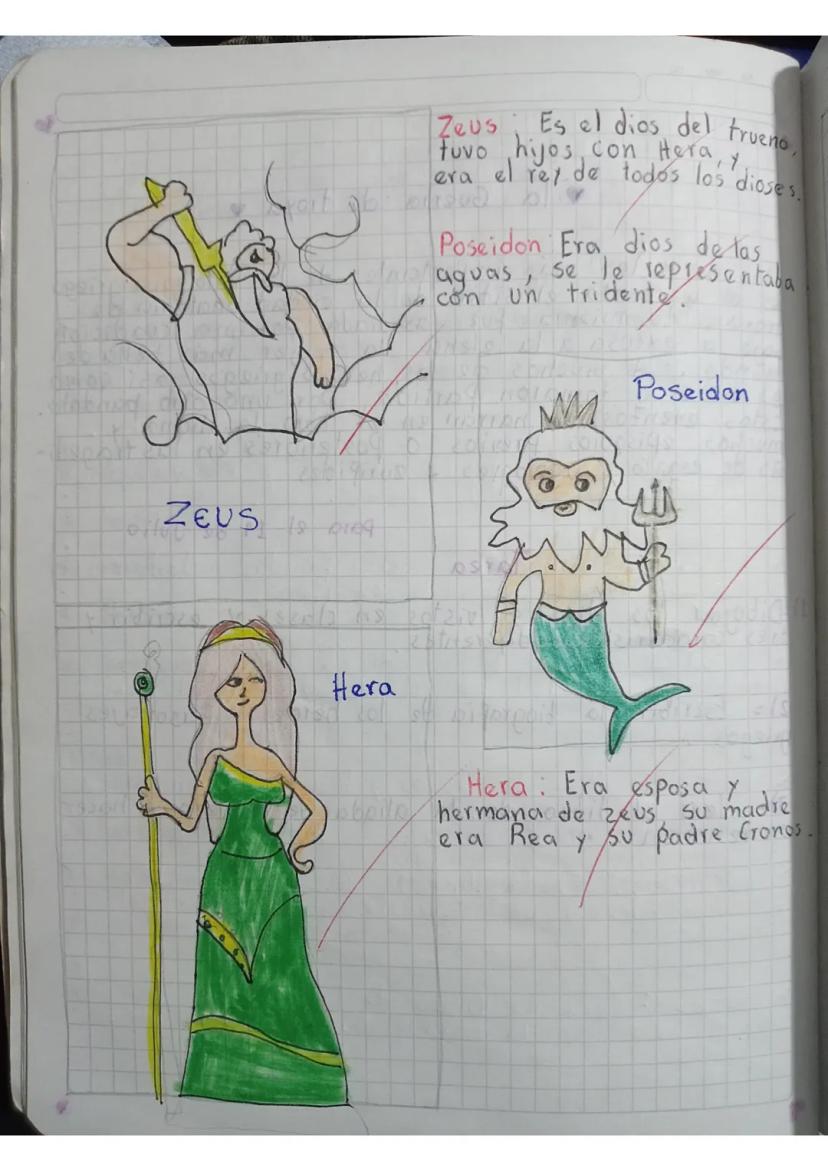 Zeus: Es el dios del trueno,
tuvo hijos con Hera, y
era el rey de todos los dioses.
Poseidon: Era dios de las
aguas, se le representaba
con un tridente.
Poseidon
ZEUS
Hera
Hera: Era esposa y
hermana de zeus, su madre
era Rea y su padre Cronos.